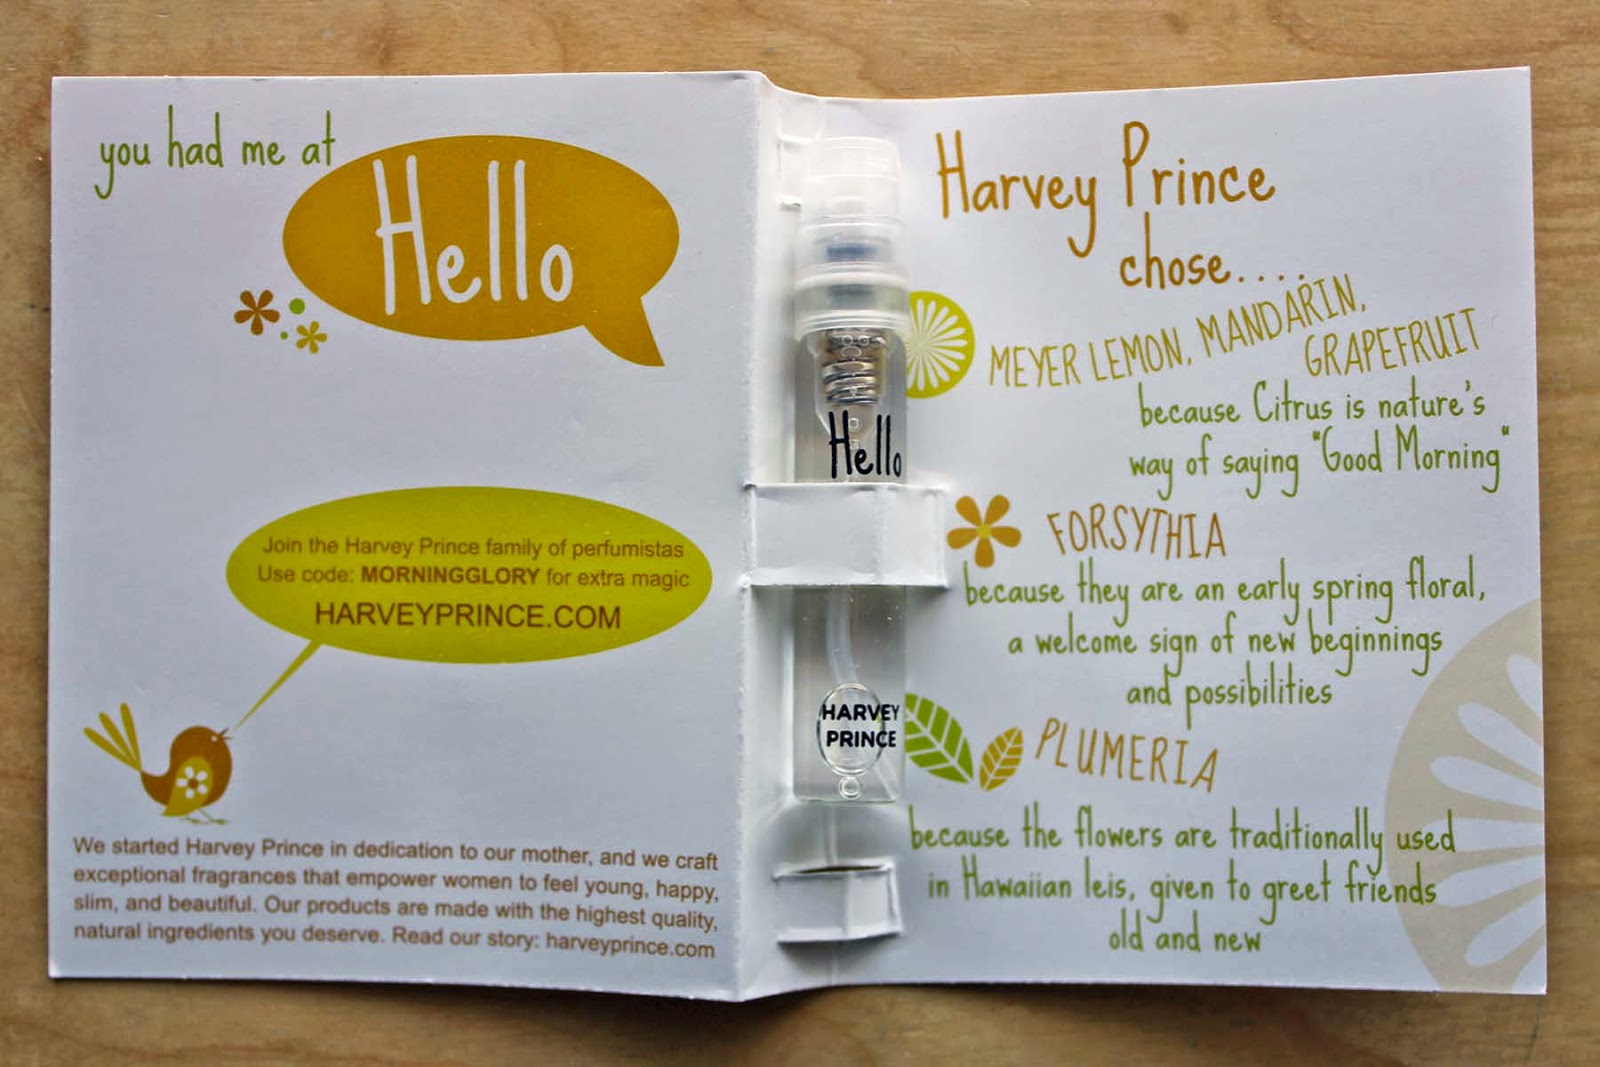 you had me at
Hello
Join the Harvey Prince family of perfumistas
Use code: MORNINGGLORY for extra magic
HARVEYPRINCE.COM
We started Harvey Prince in dedication to our mother, and we craft
exceptional fragrances that empower women to feel young, happy,
slim, and beautiful. Our products are made with the highest quality,
natural ingredients you deserve. Read our story: harveyprince.com
Hello
HARVEY
PRINCE
Harvey Prince
chose....
MEYER LEMON, MANDARIN,
GRAPEFRUIT
because Citrus is nature's
way of saying "Good Morning"
FORSYTHIA
because they are an early spring floral,
a welcome sign of new beginnings
and possibilities
PLUMERIA
because the flowers are traditionally used
in Hawaiian leis, given to greet friends
old and new